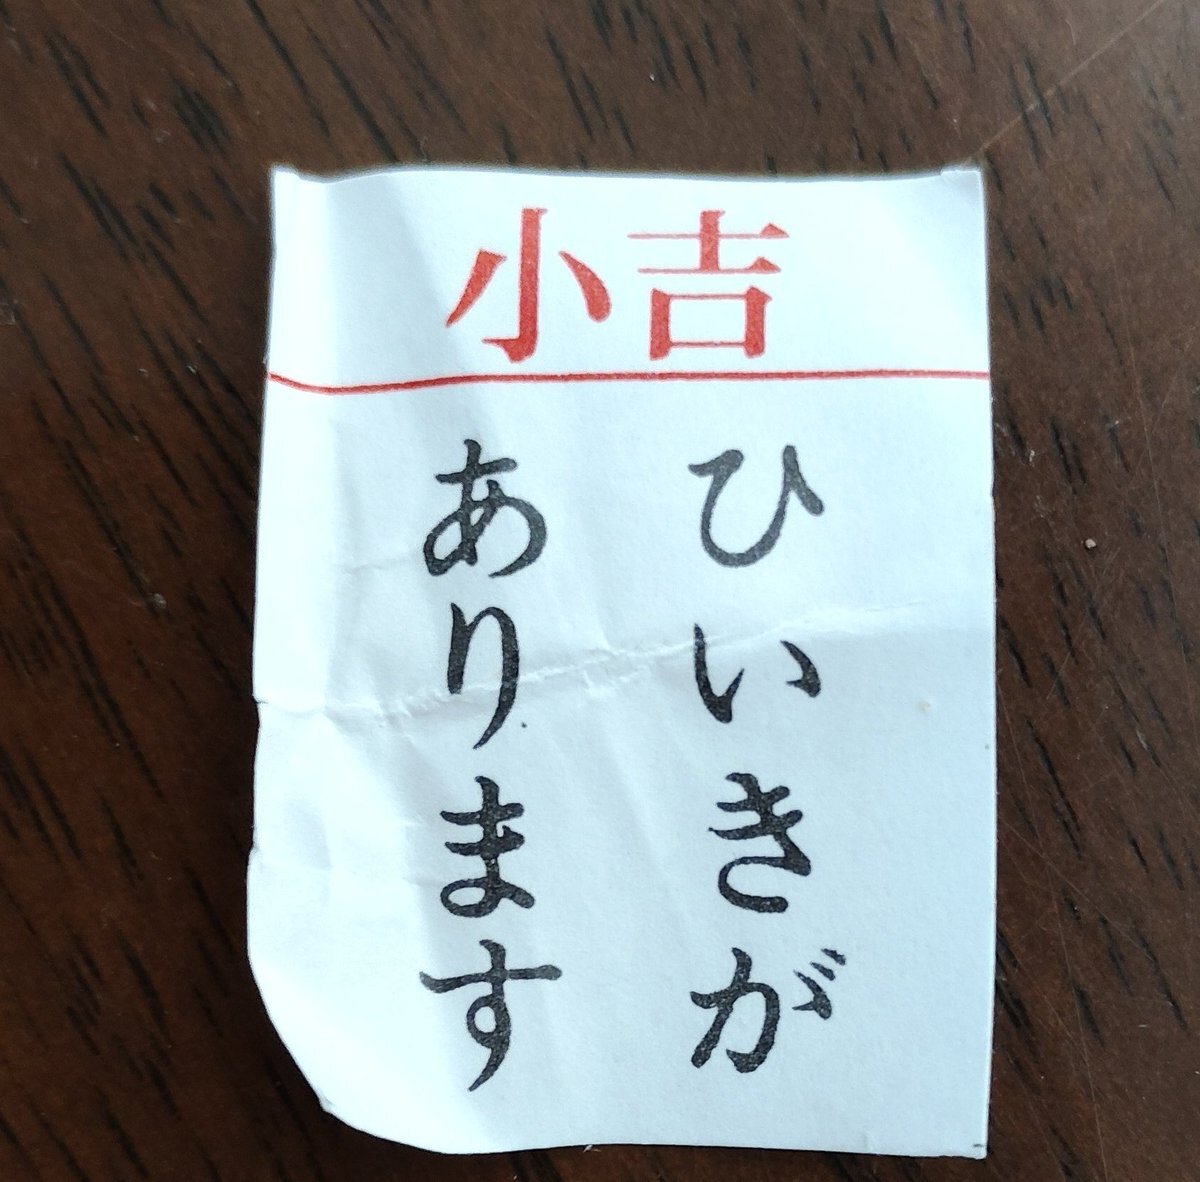 小吉
ひいきが
あります